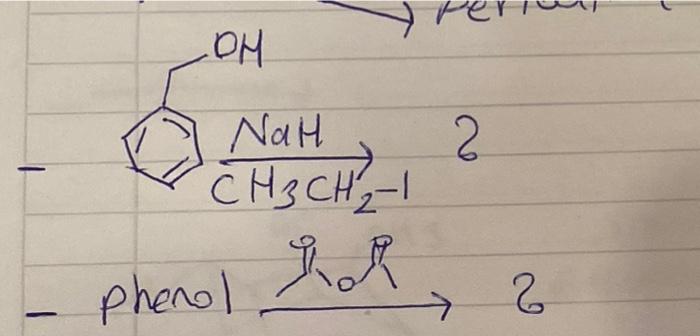 OH
NaH
CH3CH2-I ?
- phenol O O O ?